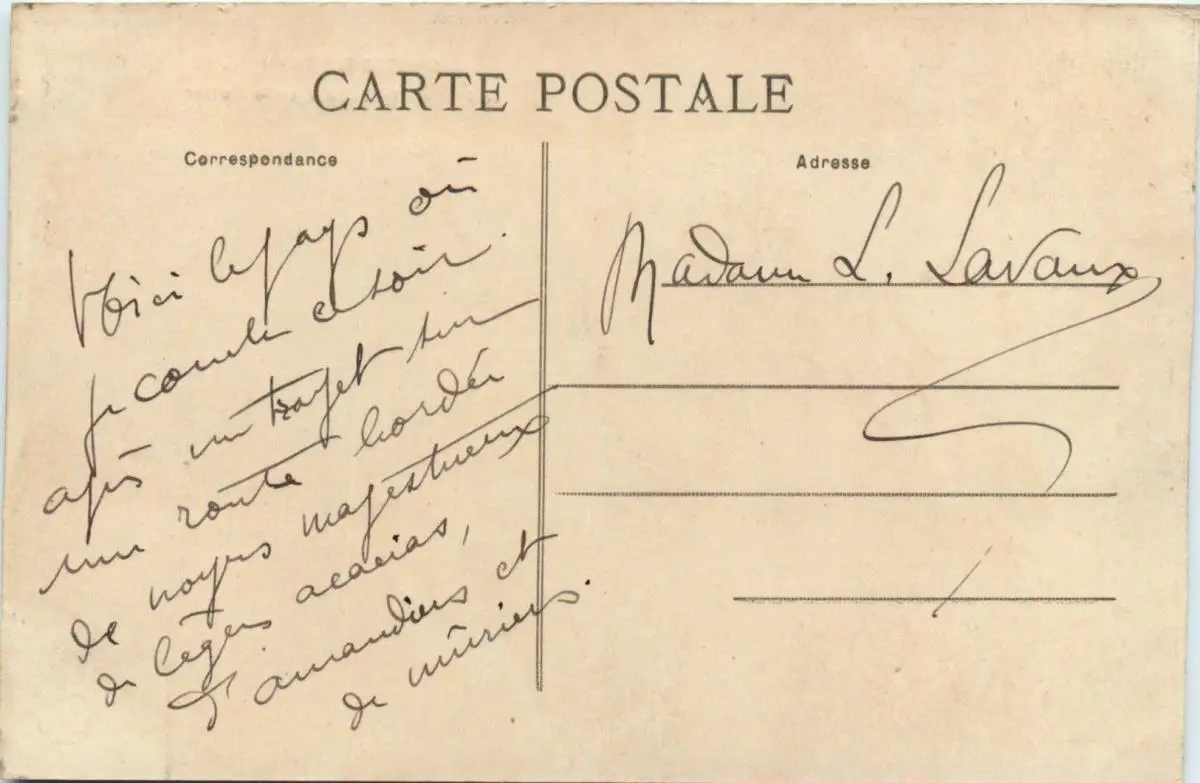 CARTE POSTALE
Correspondance
Voici le pays où
je couche ce soir.
après un trajet sur
une route bordée
de noyers majestueux
de légers acacias,
d'amandiers et
de mûriers.
Adresse
Madame L. Lavaux